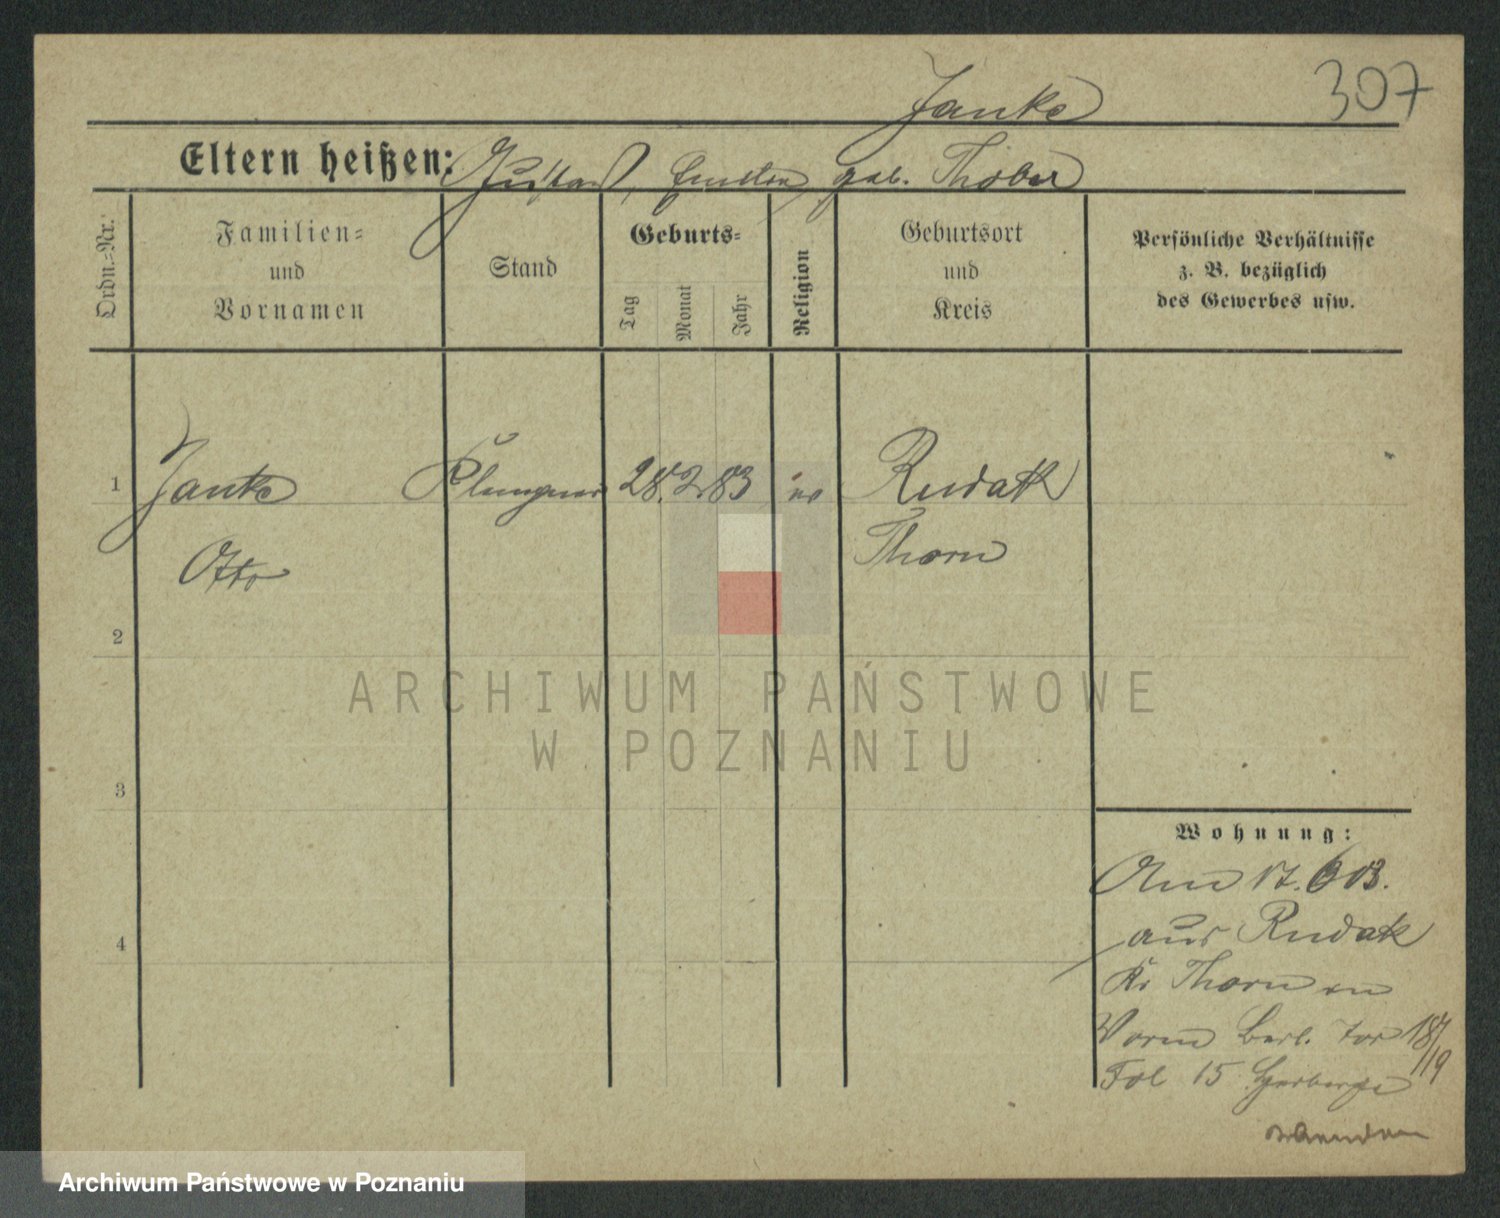 307
Janke
Eltern heißen: Gustav, geb. Thober
Ordn.-Nr.
Familien-
und
Vornamen
Stand
Geburts-
Tag
Monat
Jahr
Religion
Geburtsort
und
Kreis
Persönliche Verhältnisse
z. B. bezüglich
des Gewerbes usw.
1 Janke Klempner 28. 2. 83 ev Rudak
Otto Thorn
2
3
4
ARCHIWUM PAŃSTWOWE
W POZNANIU
Wohnung:
Am 17. 6 03.
aus Rudak
Kr Thorn in
Vorm Berl. Tor 18/19
Fol 15 Herberge
Archiwum Państwowe w Poznaniu